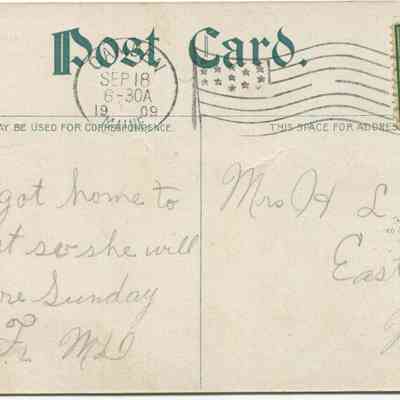 Post Card.
SEP 18
6-30A
1909
MAINE
AY BE USED FOR CORRESPONDENCE.
THIS SPACE FOR ADDRES
got home to
t so she will
re Sunday
Fr. MLD
Mrs H L
East